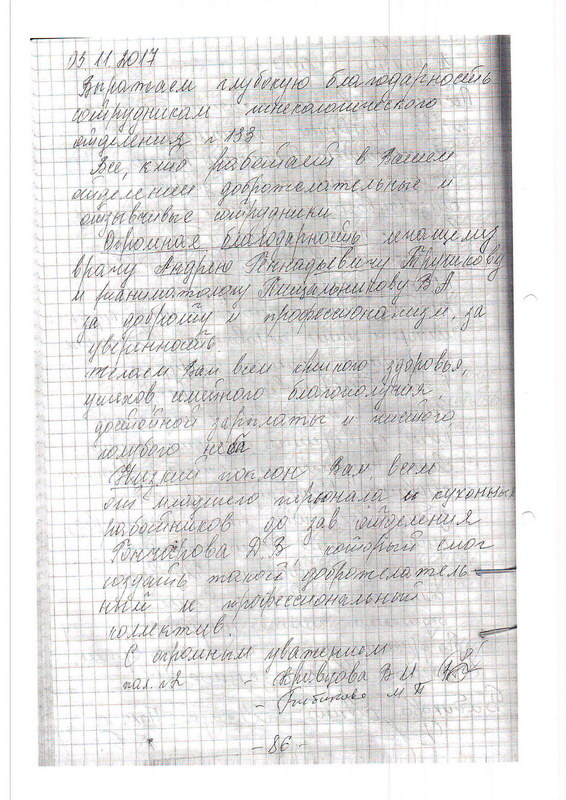 03.11.2017
Выражаем глубокую благодарность
сотрудникам гинекологического
отделения № 133
Все, кто работает в Вашем
отделении доброжелательные и
отзывчивые сотрудники
Огромная благодарность лечащему
врачу Андрею Геннадьевичу Трушкову
и реаниматологу Пищальникову В.А.
за доброту и профессионализм, за
уверенность.
желаем Вам всем крепкого здоровья,
успехов семейного благополучия,
достойной зарплаты и чистого,
голубого неба
Низкий поклон Вам всем
от младшего персонала и кухонных
работников до зав отделения
Гончарова Д.В, который смог
создать такой доброжелатель-
ный и профессиональный
коллектив.
С огромным уважением
пал. №2 - Кравцова В И
- М П
- 86 -